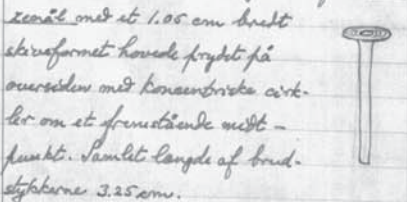 zenål med et 1.05 cm bredt
skiveformet hovede prydet på
oversiden med koncentriske cirk-
ler om et fremstående midt-
punkt. Samlet længde af brud-
stykkerne 3.25 cm.